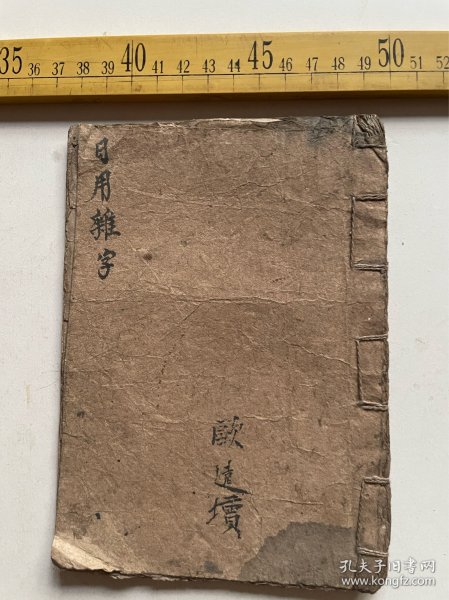 35 36 37 38 39 40 41 42 43 44 45 46 47 48 49 50 51 52
日用雜字
歐遠
孔夫子旧书网
www.kongfz.com